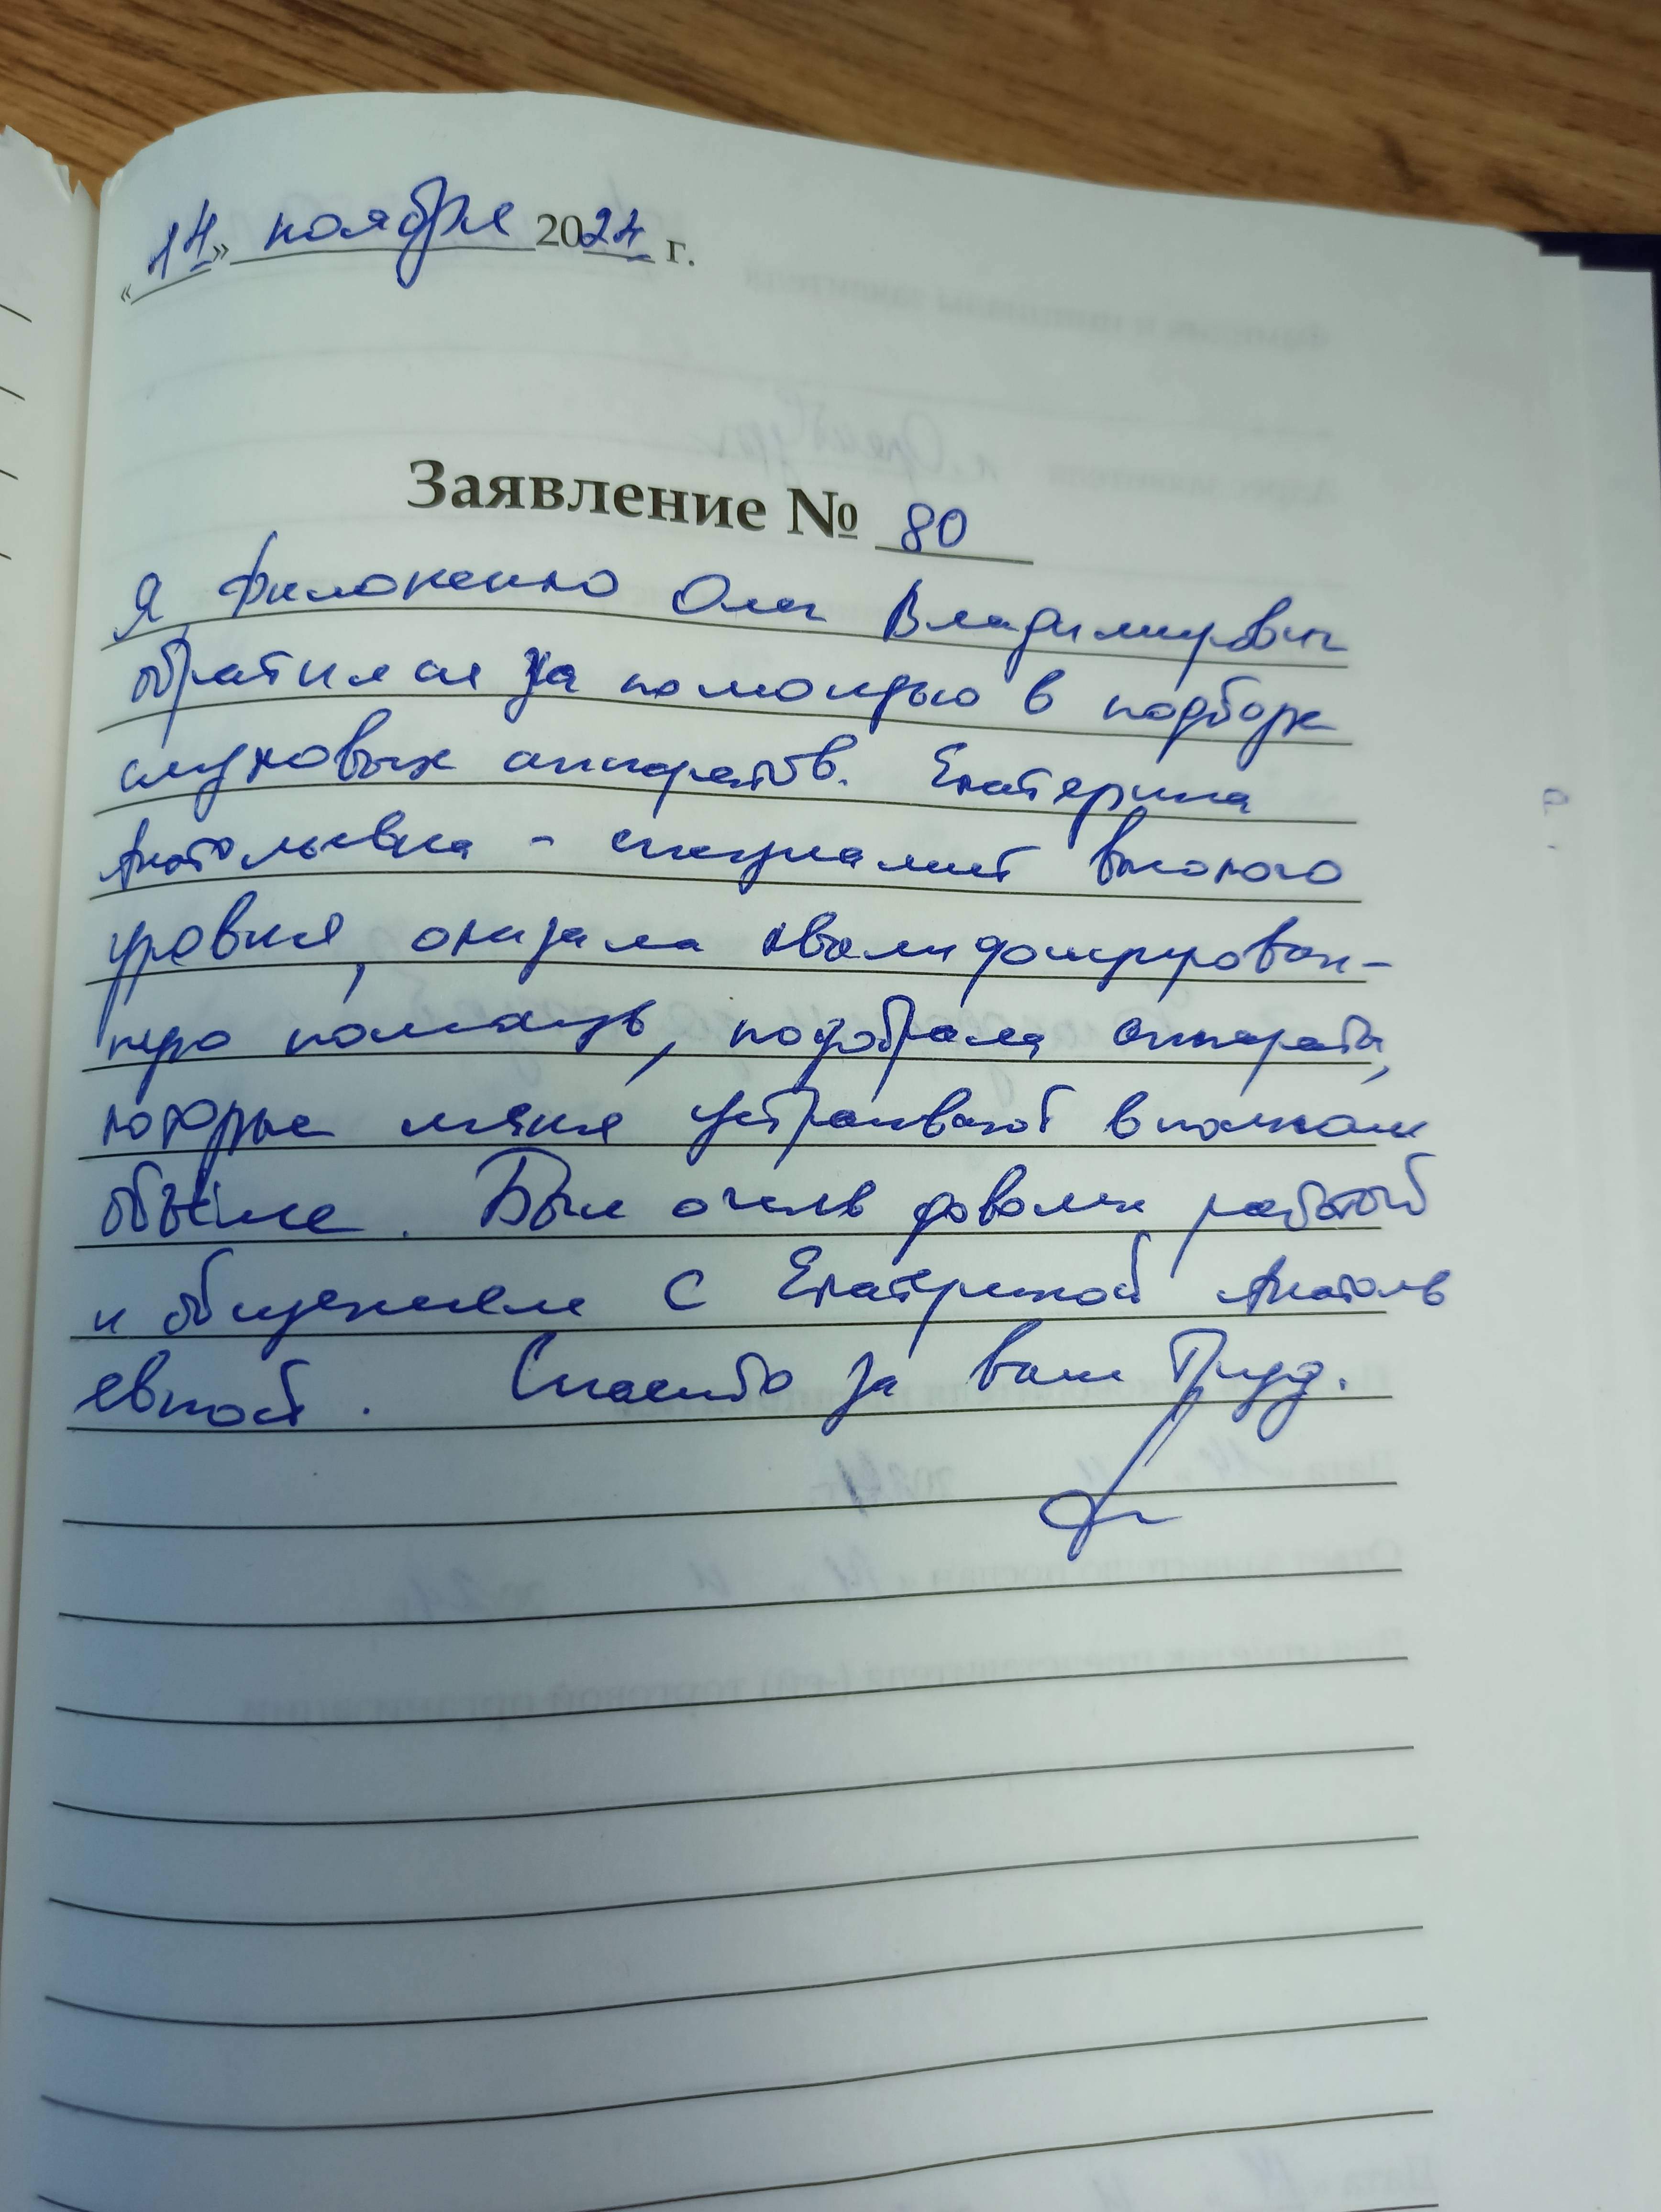 «14» ноября 2024 г.
Заявление № 80
Я, Филоненко Олег Владимирович
обратился за помощью в подборе
слуховых аппаратов. Екатерина
Анатольевна - специалист высокого
уровня, оказала квалифицирован-
ную помощь, подобрала аппараты,
которые меня устраивают в полном
объёме. Был очень доволен работой
и общением с Екатериной Анатоль
евной. Спасибо за ваш труд.